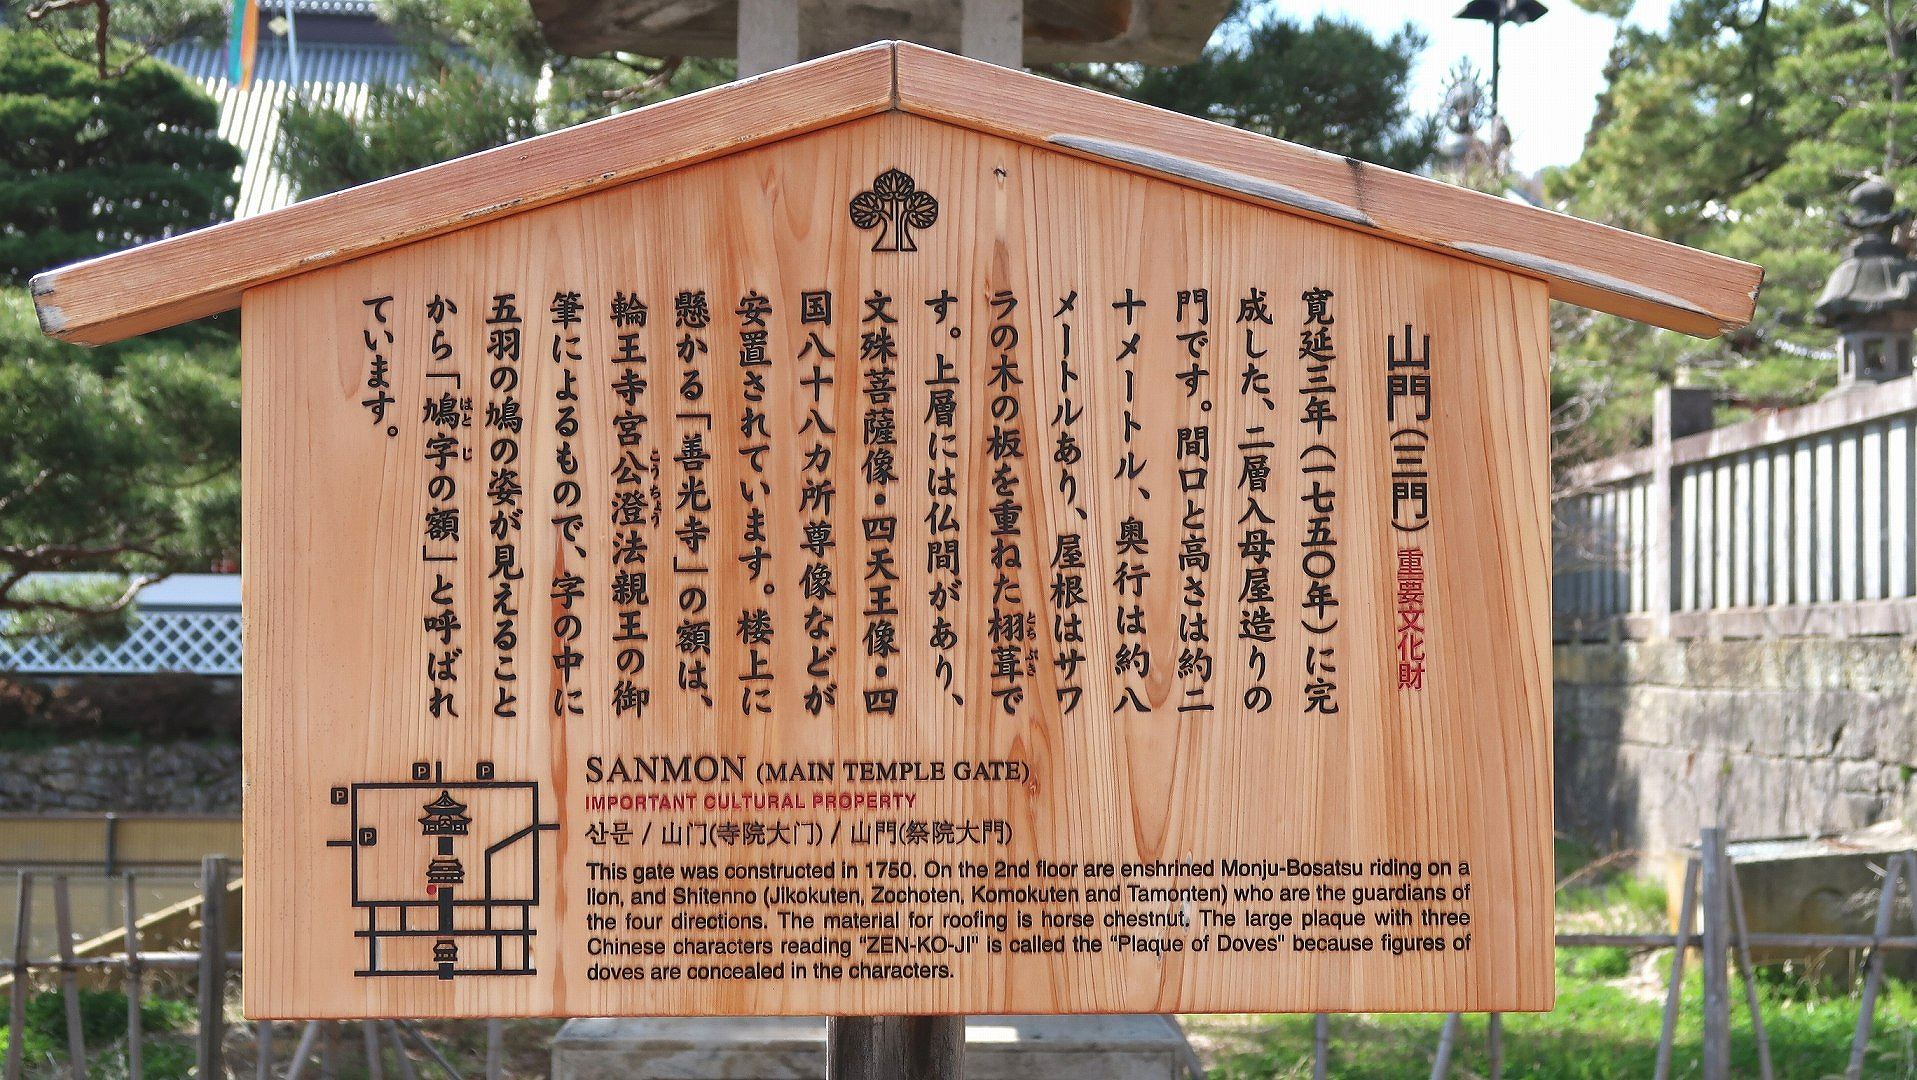 山門(三門) 重要文化財
寛延三年(一七五〇年)に完
成した、二層入母屋造りの
門です。間口と高さは約二
十メートル、奥行は約八
メートルあり、屋根はサワ
ラの木の板を重ねた栩葺で
とちぶき
す。上層には仏間があり、
文殊菩薩像・四天王像・四
国八十八カ所尊像などが
安置されています。楼上に
懸かる「善光寺」の額は、
輪王寺宮公澄法親王の御
こうちょう
筆によるもので、字の中に
五羽の鳩の姿が見えること
から「鳩字の額」と呼ばれ
はとじ
ています。
SANMON (MAIN TEMPLE GATE)
IMPORTANT CULTURAL PROPERTY
산문 / 山门(寺院大门) / 山門(祭院大門)
This gate was constructed in 1750. On the 2nd floor are enshrined Monju-Bosatsu riding on a
lion, and Shitenno (Jikokuten, Zochoten, Komokuten and Tamonten) who are the guardians of
the four directions. The material for roofing is horse chestnut. The large plaque with three
Chinese characters reading “ZEN-KO-JI” is called the “Plaque of Doves" because figures of
doves are concealed in the characters.
P
P
P
P